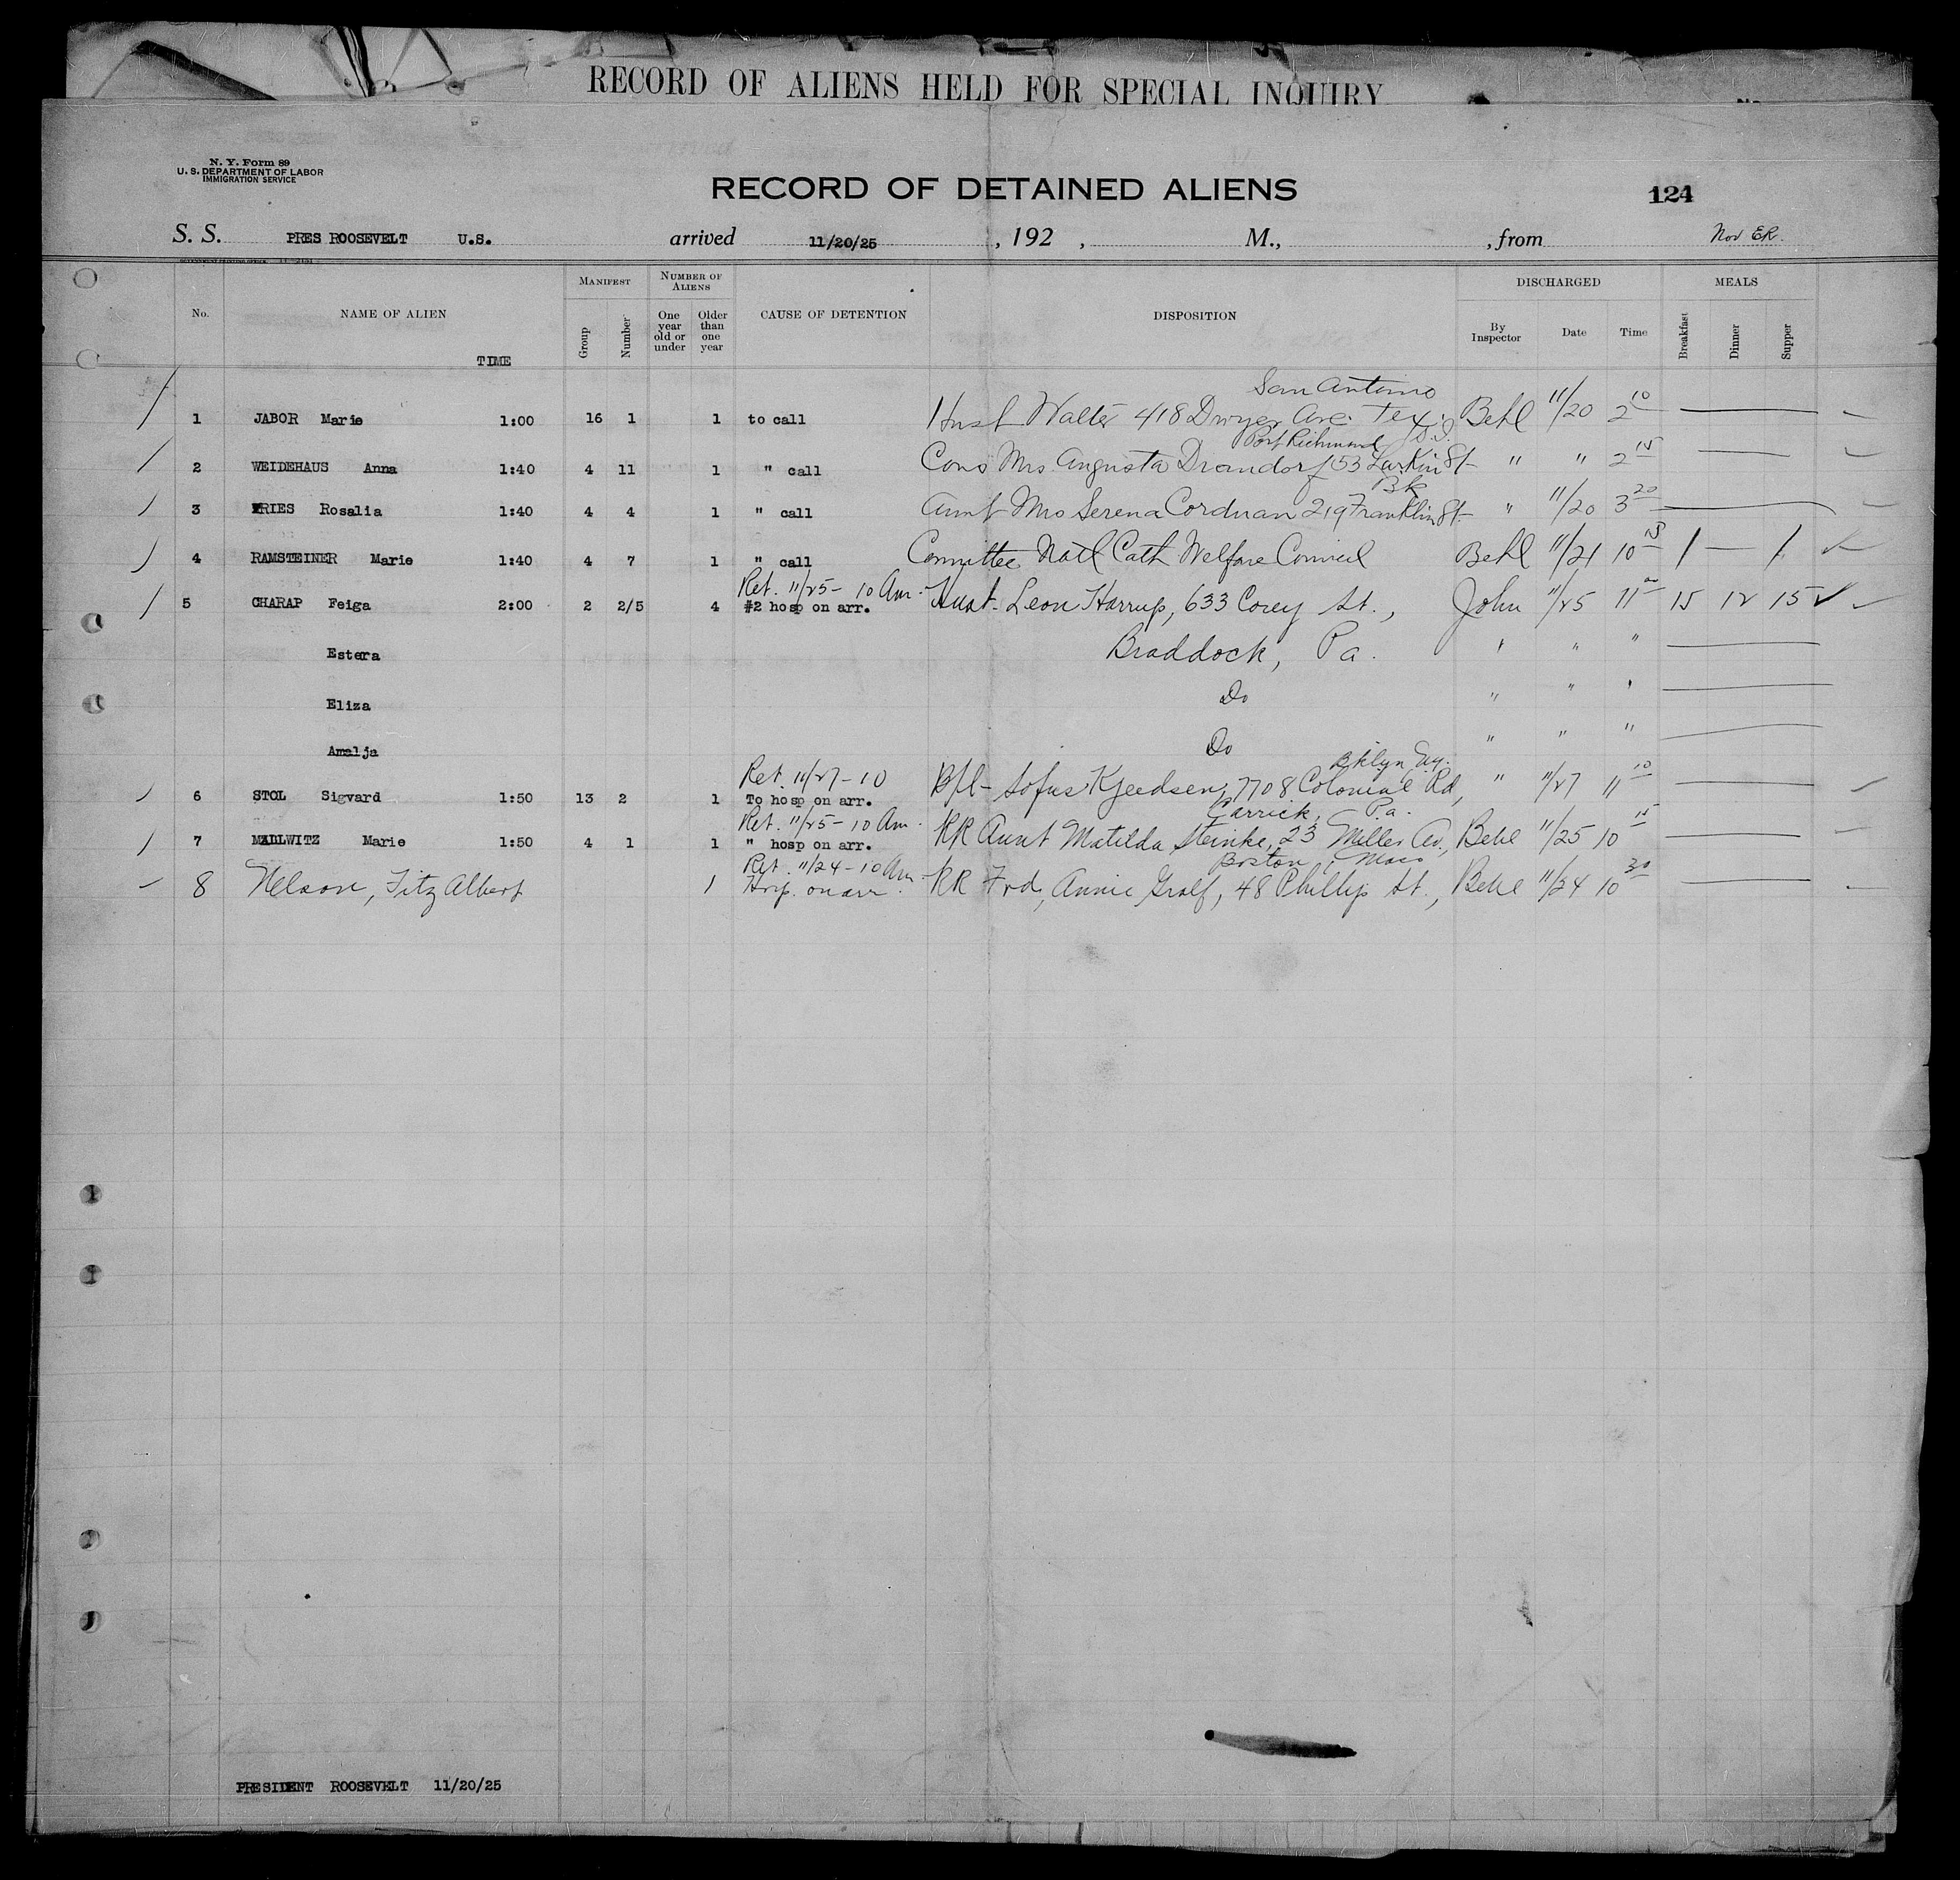 RECORD OF ALIENS HELD FOR SPECIAL INQUIRY
N. Y. Form 89
U. S. DEPARTMENT OF LABOR
IMMIGRATION SERVICE
RECORD OF DETAINED ALIENS
124
S. S. PRES ROOSEVELT U.S. arrived 11/20/25 , 192 , M., , from Nov ER.
No. NAME OF ALIEN TIME MANIFEST Group Number NUMBER OF ALIENS One year old or under Older than one year CAUSE OF DETENTION DISPOSITION DISCHARGED By Inspector Date Time MEALS Breakfast Dinner Supper
San Antonio
1 JABOR Marie 1:00 16 1 1 to call Husb Walter 418 Dwyer Ave. Tex. Behl 11/20 2 10
Port Richmond S.I.
2 WEIDEHAUS Anna 1:40 4 11 1 " call Cous Mrs Augusta Drandorf 53 Larkin St " " 2 15
Bk
3 FRIES Rosalia 1:40 4 4 1 " call Aunt Mrs Serena Corduan 219 Franklin St " 11/20 3 20
4 RAMSTEINER Marie 1:40 4 7 1 " call Committee Natl Cath Welfare Council Behl 11/21 10 15 1 — 1
Ret. 11/25 - 10 Am.
5 CHARAP Feiga 2:00 2 2/5 4 #2 hosp on arr. Husb. Leon Harrup, 633 Corey St., John 11/25 11 00 15 12 15
Estera Braddock, Pa. " " "
Eliza Do " " "
Amalja Do " " "
Ret. 11/27 - 10 Bklyn Ny.
6 STOL Sigvard 1:50 13 2 1 To hosp on arr. B/l - Sofus Kjeedsen, 7708 Colonial Rd, " 11/27 11 10
Ret. 11/25 - 10 Am. Carrick, Pa.
7 MADLWITZ Marie 1:50 4 1 1 " hosp on arr. RR Aunt Matilda Steinke, 23 Miller Av., Behl 11/25 10 15
Ret. 11/24 - 10 Am. Boston, Mass
8 Nelson, Fitz Albert 1 Hosp. on arr. RR Frd, Annie Gralf, 48 Phillips St., Behl 11/24 10 30
PRESIDENT ROOSEVELT 11/20/25